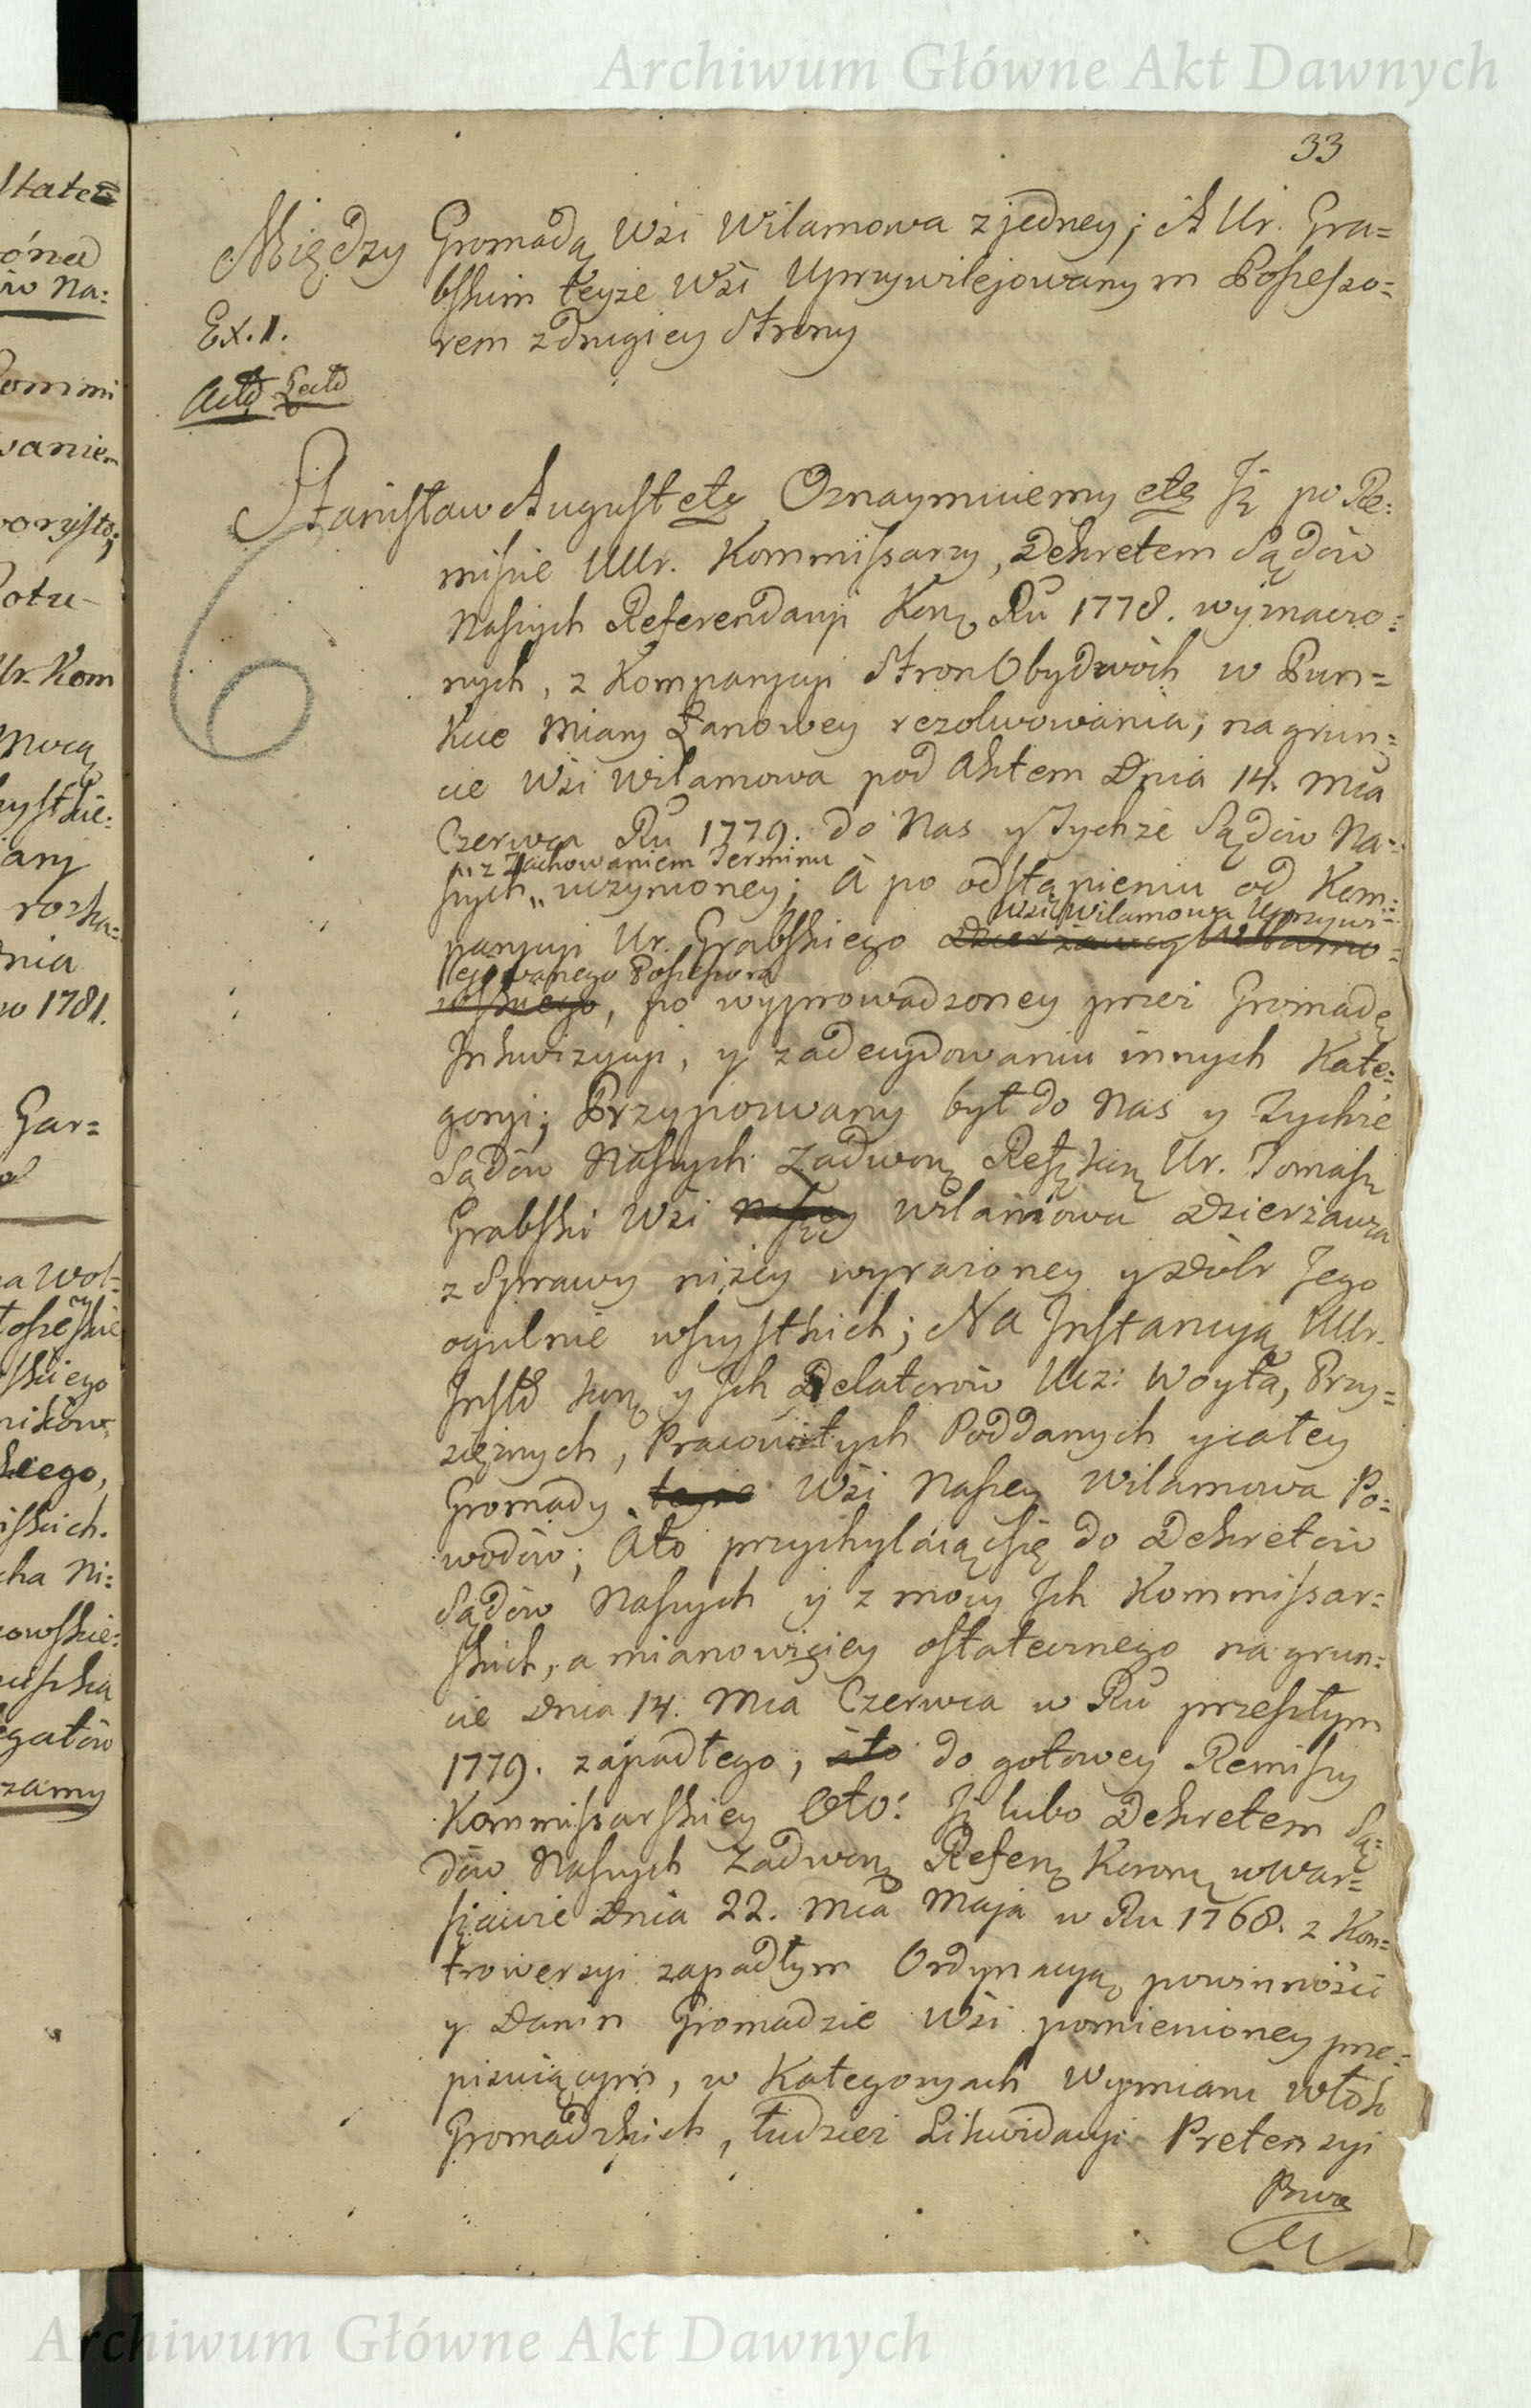 Archiwum Główne Akt Dawnych
33
Między Gromadą Wsi Wilamowa z jedney; A Ur. Gra=
bskim teyże Wsi Uprzywilejowanym Possesso=
rem z drugiey Strony
Ex. 1.
Stanisław August etc Oznaymuiemy etc Iż po Re:
missie UUr. Kommissarzy, Dekretem Sądów
Naszych Referendaryi Kor. Ru 1778. wyznaczo=
nych, z Kompanycyi Stron Obydwóch w Pun=
kcie Miary Łanowey rezolwowania, na grun=
cie Wsi Wilamowa pod Aktem Dnia 14. Mca
Czerwca Ru 1779. do Nas y Tychże Sądów Na=
z Zachowaniem Terminu
szych uczynioney; A po odstąpieniu od Kom=
Wsi Wilamowa Uprzywi=
panycyi Ur. Grabskiego
lejowanego Possessora
, po wyprowadzoney przez Gromadę
Inkwizycyi, y zadecydowaniu innych Kate:
goryi; Przypozwany był do Nas y Tychże
Sądów Naszych Zadwor. Ref. kor. Ur. Tomasz
Grabski Wsi Naszey Wilamowa Dzierżawca
z Sprawy niżey wyrażoney y Dóbr Jego
ogulnie wszystkich; Na Instancyą UUr.
Inst kor. y Ich Delatorów Ucz: Woyta, Przy=
siężnych, Pracowitych Poddanych y całey
Gromady teyże Wsi Naszey Wilamowa Po=
wodów; Ato przychylaiąc się do Dekretów
Sądów Naszych y z mocy Ich Kommissar=
skich, a mianowiciey ostatecznego na grun:
cie Dnia 14. Mca Czerwca w Ru przeszłym
1779. zapadłego, ato do gotowey Remissy
Kommissarskiey Oto: Iż lubo Dekretem Są=
dów Naszych Zadwor. Refer. Koron. w War=
szawie Dnia 22. Mca Maja w Ru 1768. z Kon=
trowersyi zapadłym Ordynacyą powinności
y Danin Gromadzie Wsi pomienioney prze=
pisuiącym, w Kategoryach Wymiaru Włók
Gromadzkich, tudzież Likwidacyi Pretensyi
Archiwum Główne Akt Dawnych